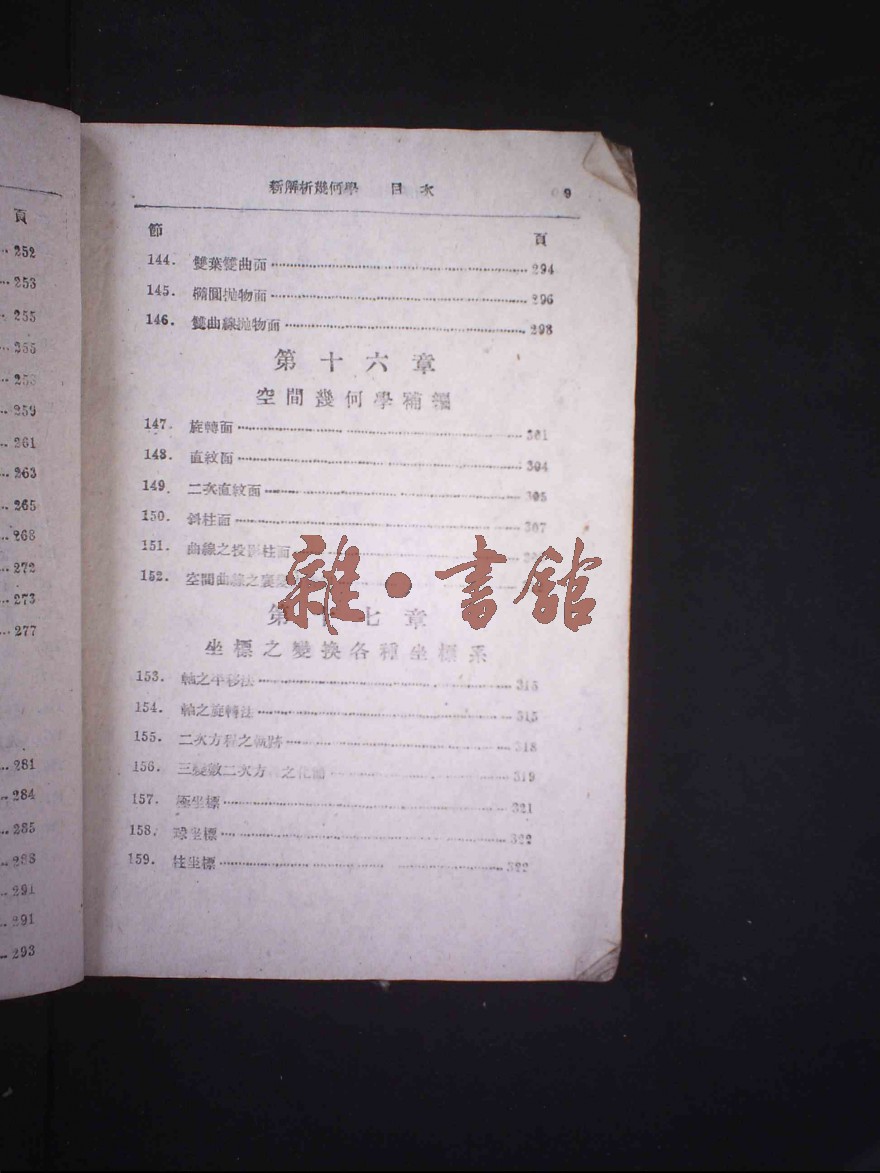 頁
252
253
255
255
259
261
263
265
268
272
273
277
281
284
285
288
291
291
293
新解析幾何學 目次 9
節 頁
144. 雙葉雙曲面 294
145. 橢圓拋物面 296
146. 雙曲線拋物面 298
第十六章
空間幾何學補編
147. 旋轉面 301
148. 直紋面 304
149. 二次直紋面 305
150. 斜柱面 307
151. 曲線之投影柱面
152. 空間曲線之
雜·書館
第十七章
坐標之變換各種坐標系
153. 軸之平移法 313
154. 軸之旋轉法 315
155. 二次方程之軌跡 318
156. 三變數二次方 之化簡 319
157. 極坐標 321
158. 球坐標 322
159. 柱坐標 322